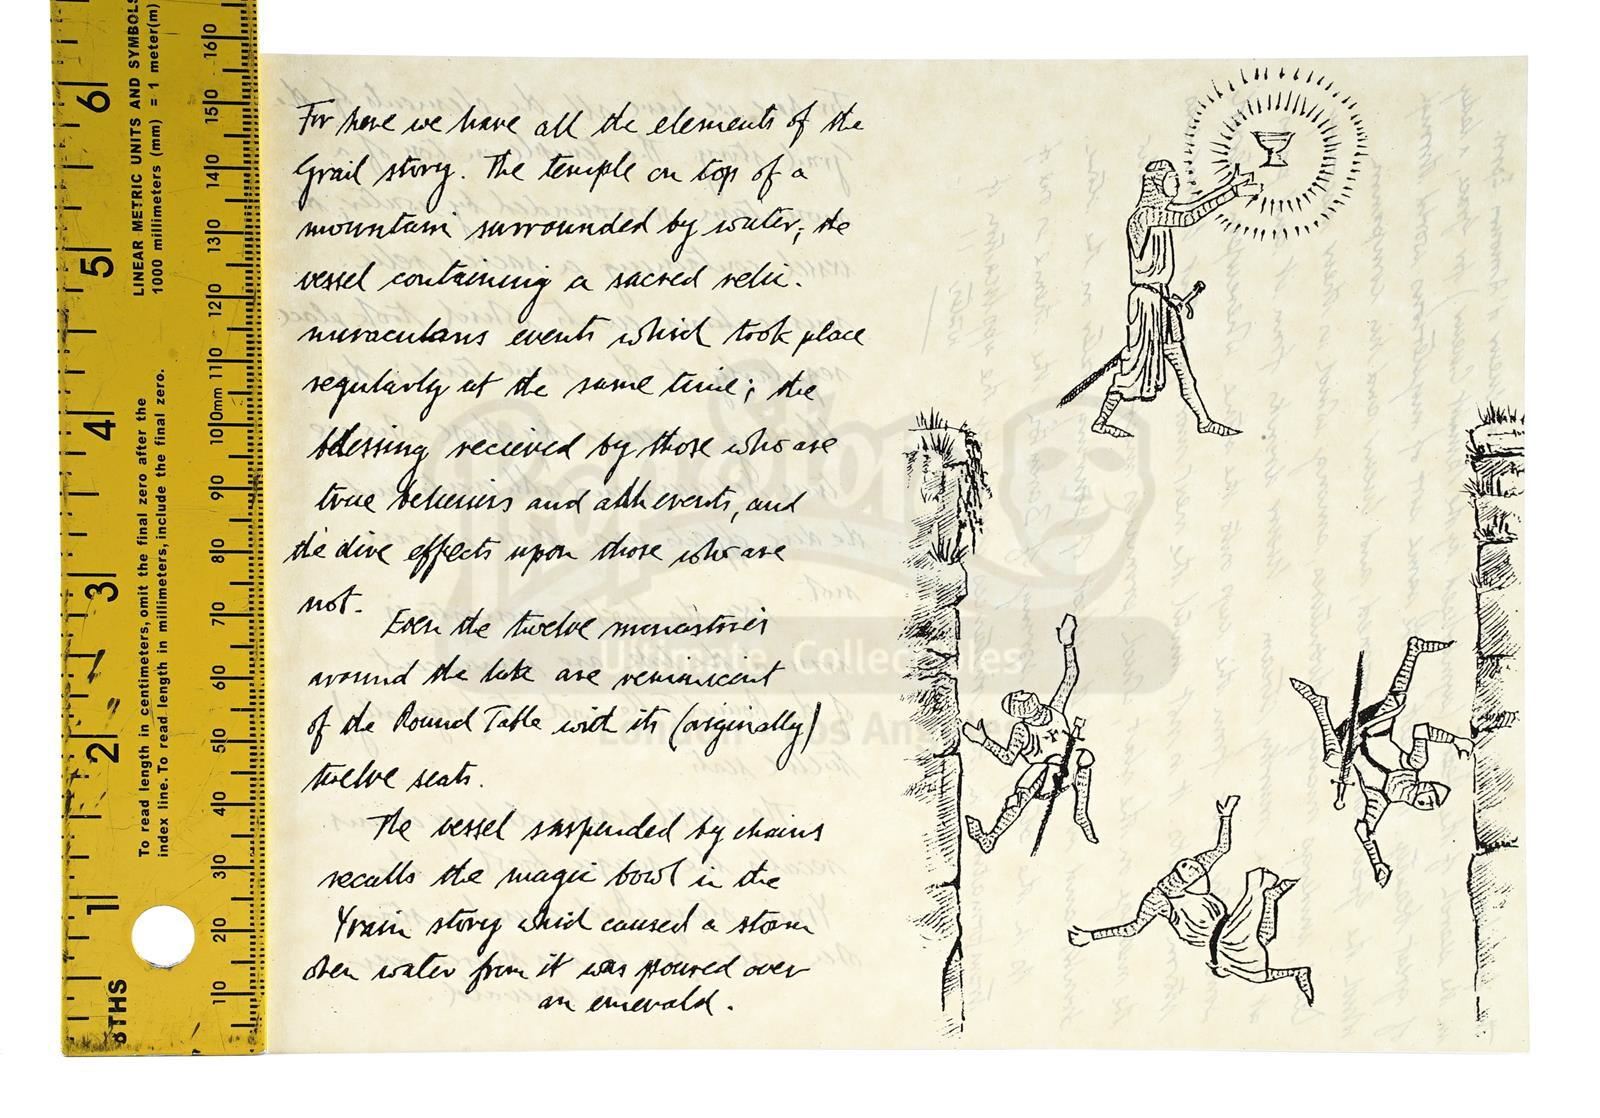 For here we have all the elements of the
Grail story. The temple on top of a
mountain surrounded by water; the
vessel containing a sacred relic.
miraculous events which took place
regularly at the same time; the
blessing recieved by those who are
true believers and adherents, and
the dire effects upon those who are
not.
Even the twelve monasteries
around the lake are reminiscent
of the Round Table with its (originally)
twelve seats.
The vessel suspended by chains
recalls the magic bowl in the
Yvain story which caused a storm
when water from it was poured over
an emerald.
LINEAR METRIC UNITS AND SYMBOLS
1000 millimeters (mm) = 1 meter(m)
To read length in centimeters, omit the final zero after the
index line. To read length in millimeters, include the final zero.
6
5
4
3
2
1
8THS
160
150
140
130
120
110
100mm
90
80
70
60
50
40
30
20
10
Ultimate Collectables
London Los Angeles